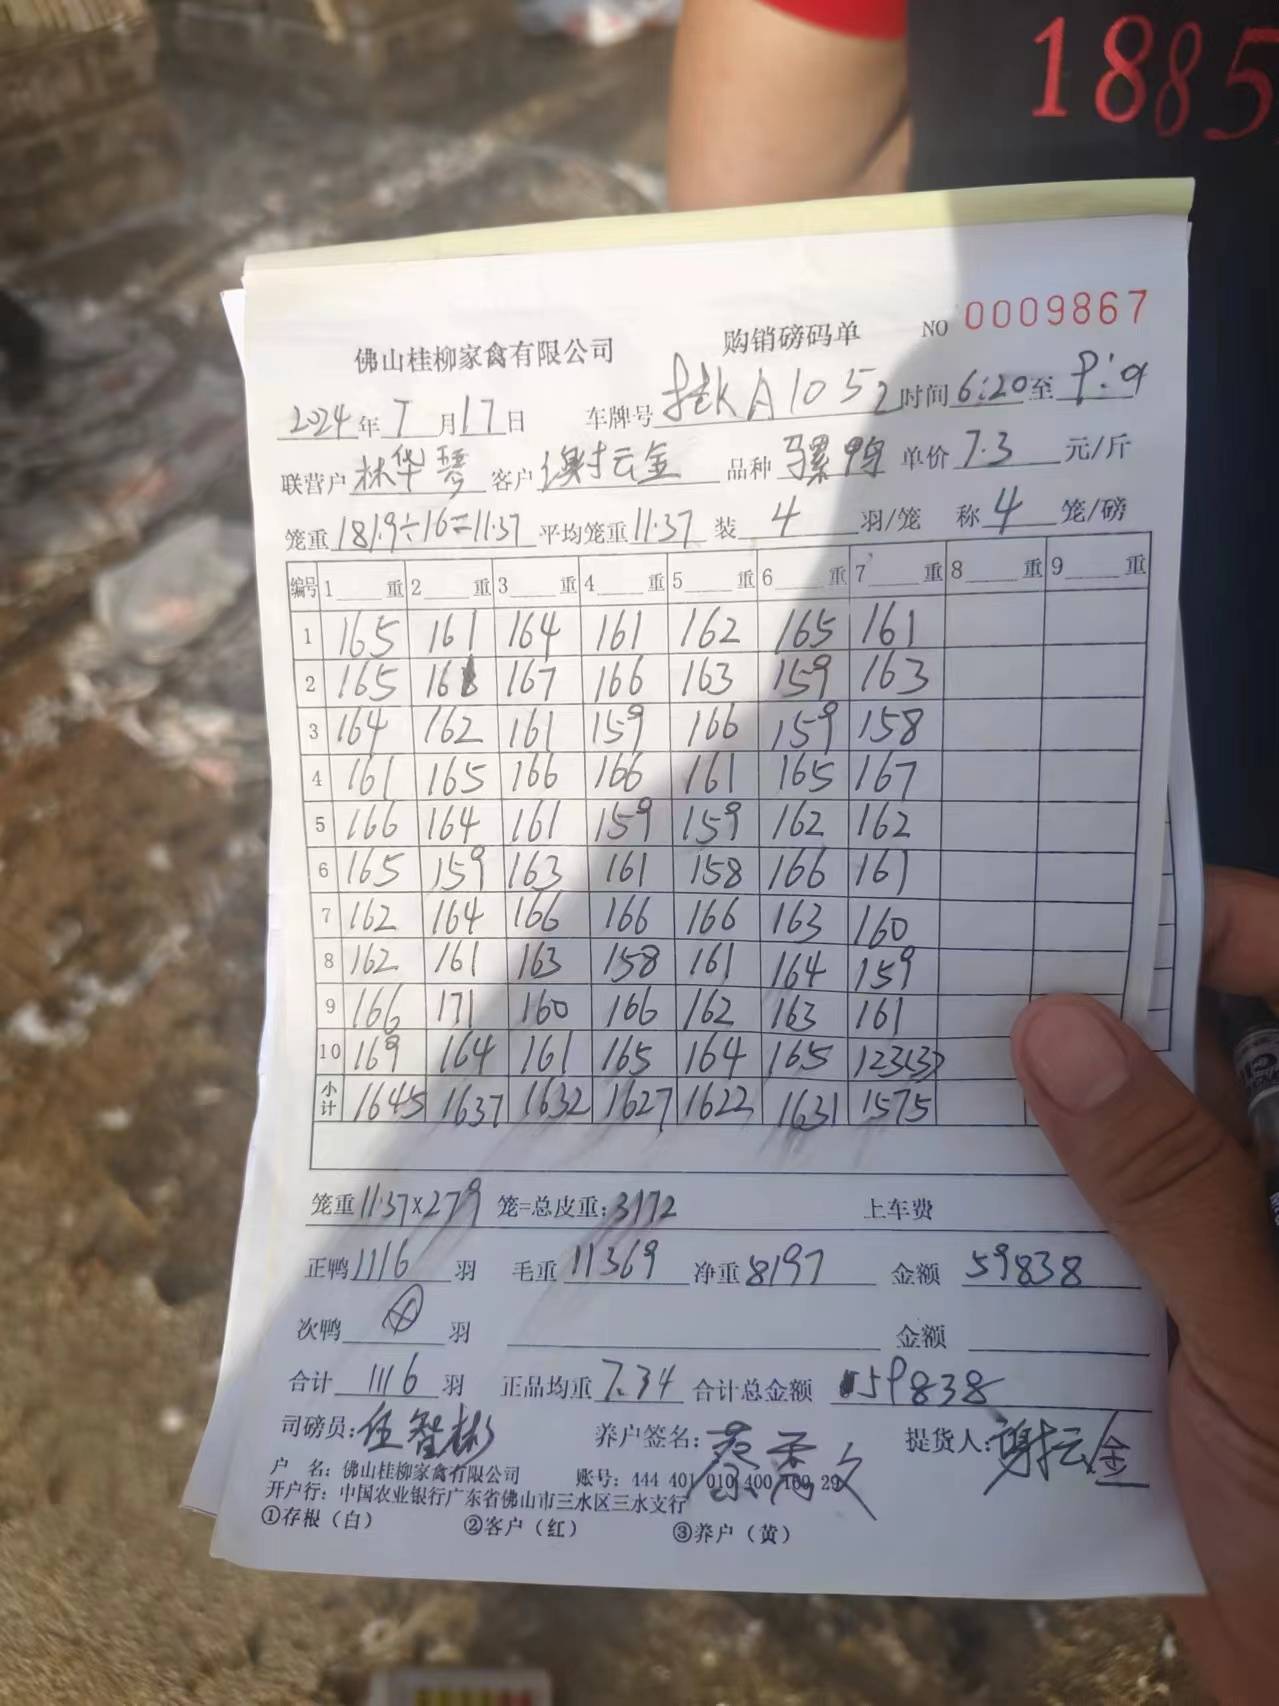 1885
佛山桂柳家禽有限公司 购销磅码单 NO 0009867
2024年7月17日 车牌号 A1052 时间6:20至
联营户 林华 客户 谢坛金 品种 骡鸭 单价 7.3 元/斤
笼重 181.9÷16=11.37 平均笼重 11.37 装 4 羽/笼 称 4 笼/磅
编号 1 重 2 重 3 重 4 重 5 重 6 重 7 重 8 重 9 重
1 165 161 164 161 162 165 161
2 165 167 166 163 159 163
3 164 162 161 159 166 159 158
4 161 165 166 166 161 165 167
5 166 164 161 159 159 162 162
6 165 159 163 161 158 166 161
7 162 164 166 166 166 163 160
8 162 161 163 158 161 164 159
9 166 171 160 166 162 163 161
10 169 164 161 165 164 165 123(3)
小计 1645 1637 1632 1627 1622 1631 1575
笼重 11.37×279 笼=总皮重: 3172 上车费
正鸭 1116 羽 毛重 11369 净重 8197 金额 59838
次鸭 羽 金额
合计 1116 羽 正品均重 7.34 合计总金额 59838
司磅员: 伍智彬 养户签名: 提货人: 谢坛金
户 名: 佛山桂柳家禽有限公司 账号: 444 401 010 400 29
开户行: 中国农业银行广东省佛山市三水区三水支行
①存根（白） ②客户（红） ③养户（黄）